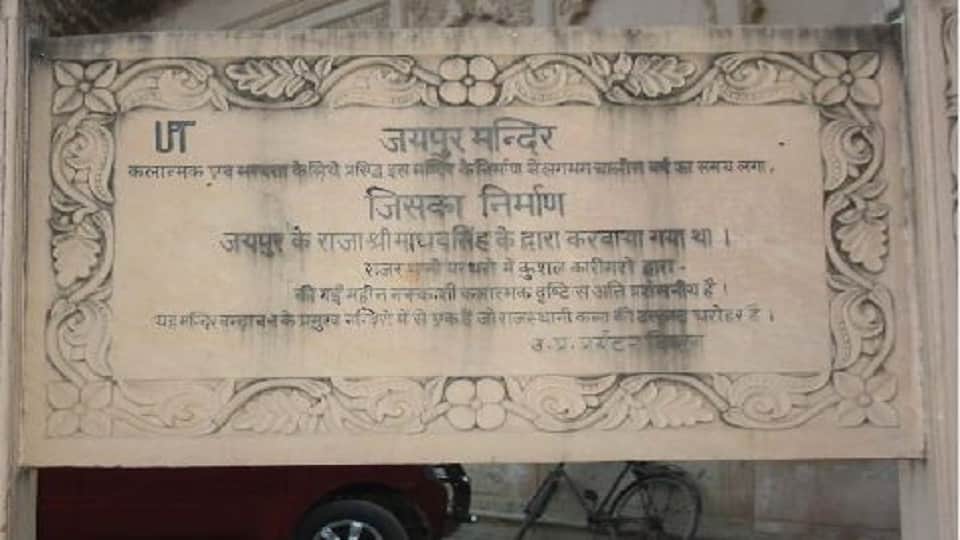 UPT
जयपुर मन्दिर
कलात्मक एवं भव्यता के लिये प्रसिद्ध इस मन्दिर के निर्माण में लगभग चालीस वर्ष का समय लगा,
जिसका निर्माण
जयपुर के राजा श्री माधवसिंह के द्वारा करवाया गया था ।
पत्थरो में कुशल कारीगरो द्वारा -
की गई महीन नक्काशी कलात्मक दृष्टि से अति प्रशंसनीय है ।
यह मन्दिर वृन्दावन के प्रमुख मन्दिरो में से एक है जो राजस्थानी कला की धरोहर है ।
उ.प्र. पर्यटन विभाग